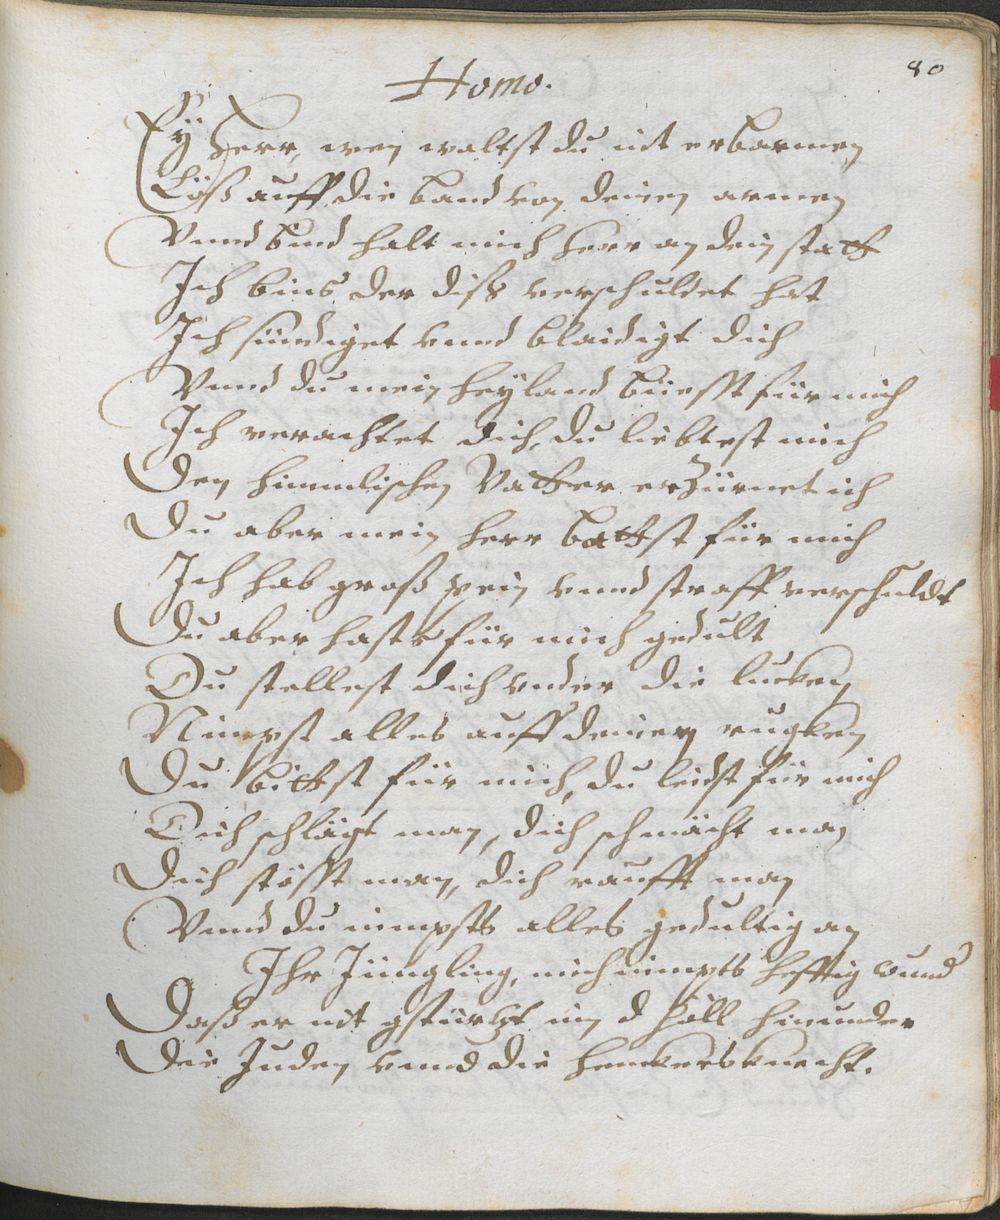 80
Homo.
Ey Herr, wen woltst du nit erbarmen
Löß auff die band von deinen armen
Vnnd bind halt mich herr an dein statt
Ich bins der diss verschuldet hat
Ich sündiget vnnd blaidigt dich
Vnnd du mein heyland büesst für mich
Ich verachtet dich, du liebtest mich
Den himmlischen Vatter erzürnet ich
Du aber mein herr battst für mich
Ich hab groß pein vnnd straff verschuldt
Du aber hasts für mich gedult
Du stellest dich vnder die lucken
Nimpst alles auff deinen rugken
Du bittst für mich, du leidst für mich
Dich schlägt man, dich schmächt man
Dich stösst man, dich raufft man
Vnnd du nimpsts alles gedultig an
Ihr Jüngling, mich nimpts hefftig wund
Daß er nit gstürtzt in d höll hinunder
Die Juden vnnd die henckersknecht.